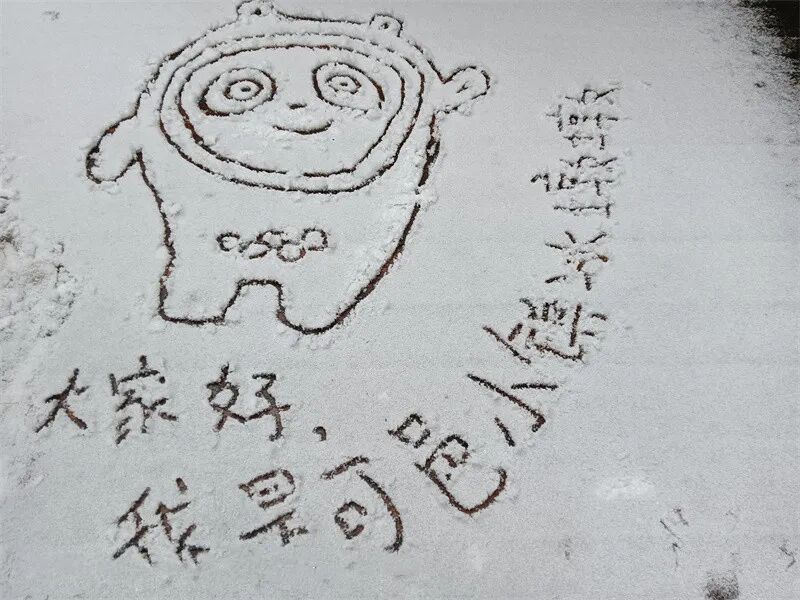 大家好，
我是可吧小冰墩墩